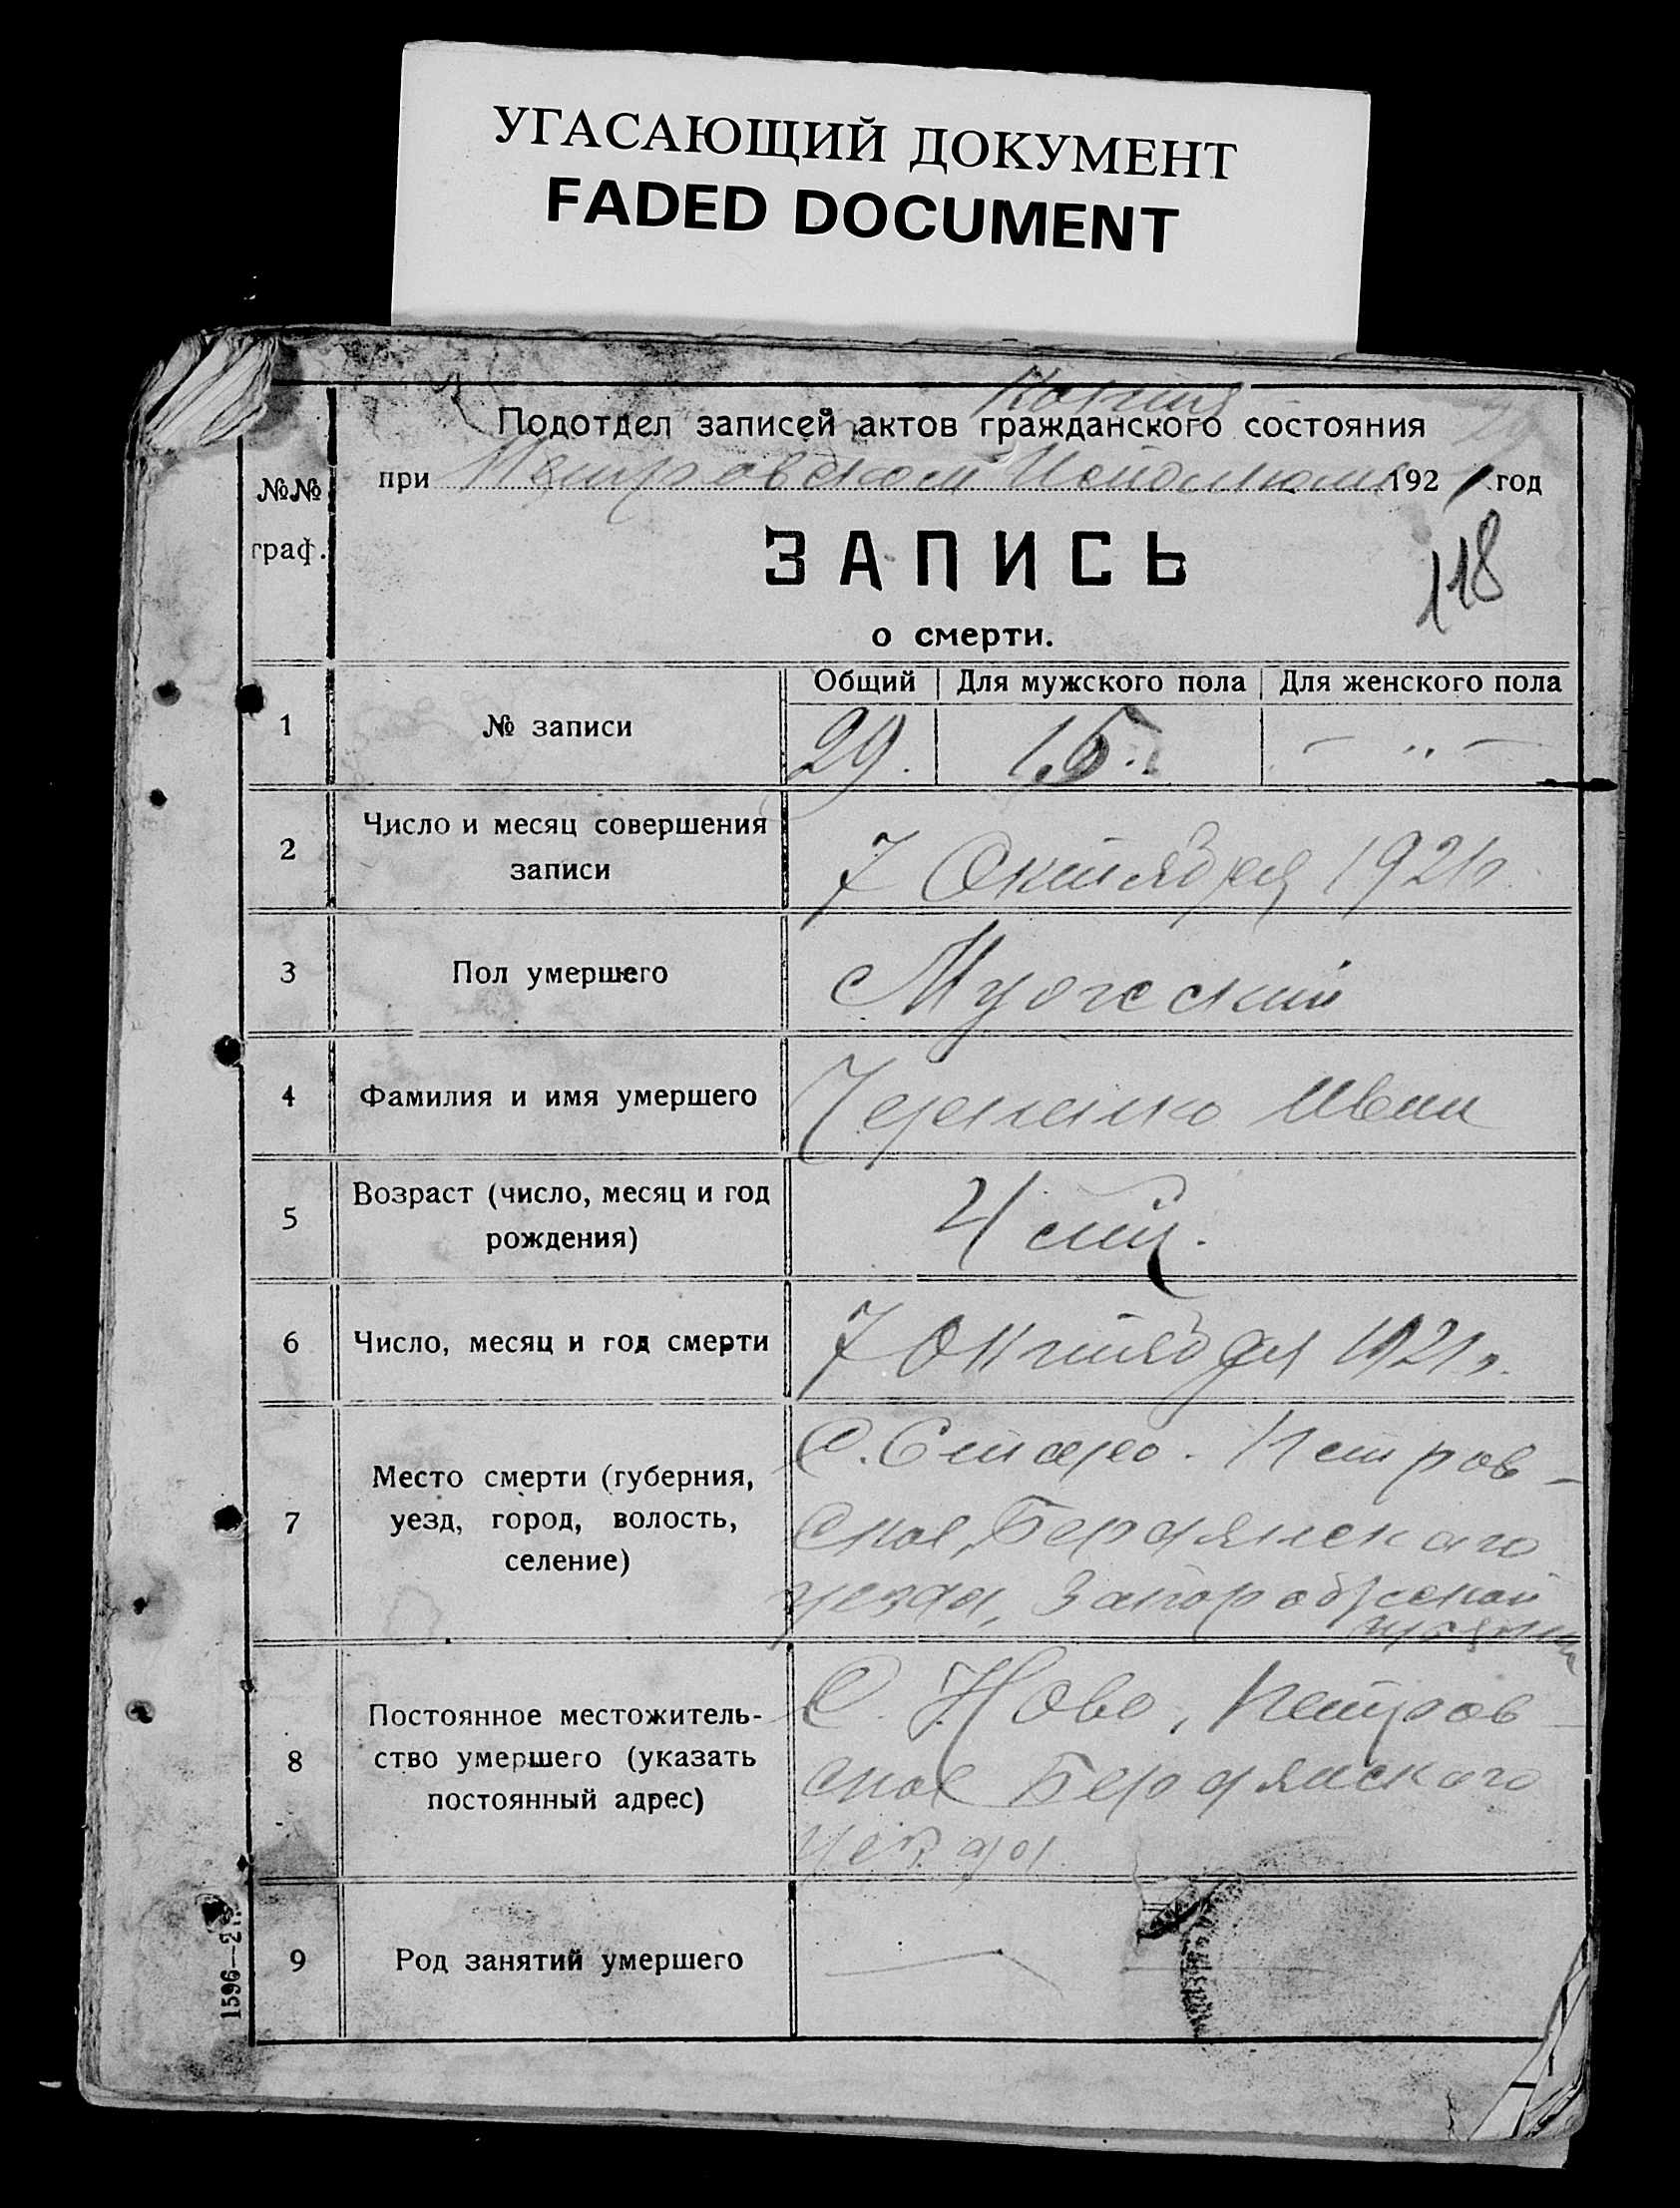 УГАСАЮЩИЙ ДОКУМЕНТ
FADED DOCUMENT
Копия
Подотдел записей актов гражданского состояния
№№ граф.
при Петровском Исполкоме 1921 год
ЗАПИСЬ
118
о смерти.
Общий Для мужского пола Для женского пола
1 № записи 29. 15. — " —
2 Число и месяц совершения
записи
7 Октября 1921 г.
3 Пол умершего Мужеский
4 Фамилия и имя умершего Черненко Иван
5 Возраст (число, месяц и год
рождения)
6 Число, месяц и год смерти 7 Октября 1921 г.
7 Место смерти (губерния,
уезд, город, волость,
селение)
С. Старо-Петров-
ское, Бердянского
уезда, Запорожской
губернии
8 Постоянное местожитель-
ство умершего (указать
постоянный адрес)
С. Ново-Петров-
ское Бердянского
уезда
9 Род занятий умершего —